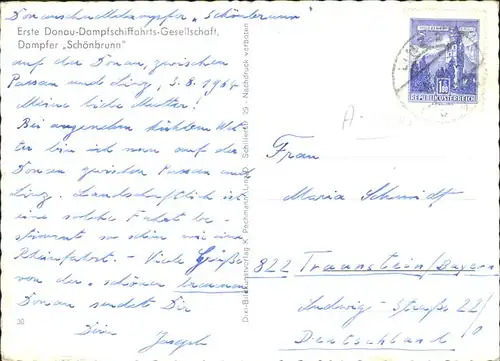 Donauschnelldampfer „Schönbrunn"
Erste Donau-Dampfschiffahrts-Gesellschaft,
Dampfer „Schönbrunn"
auf der Donau, zwischen
Passau und Linz, 3.8.1964
Meine liebe Mutter!
Bei angenehm kühlem Wet-
ter bin ich nun auf der
Donau zwischen Passau und
Linz. Landschaftlich ist
eine solche Fahrt be-
stimmt so schön wie eine
Rheinfahrt. - Viele Grüße
von der „schönen blauen"
Donau sendet Dir
Dein Joseph
30
Nachdruck verboten
REPUBLIK ÖSTERREICH
LINZ
A-
Frau
Maria Schmidt
822 Traunstein/Bayern
Ludwig-Straße 22/
Deutschland